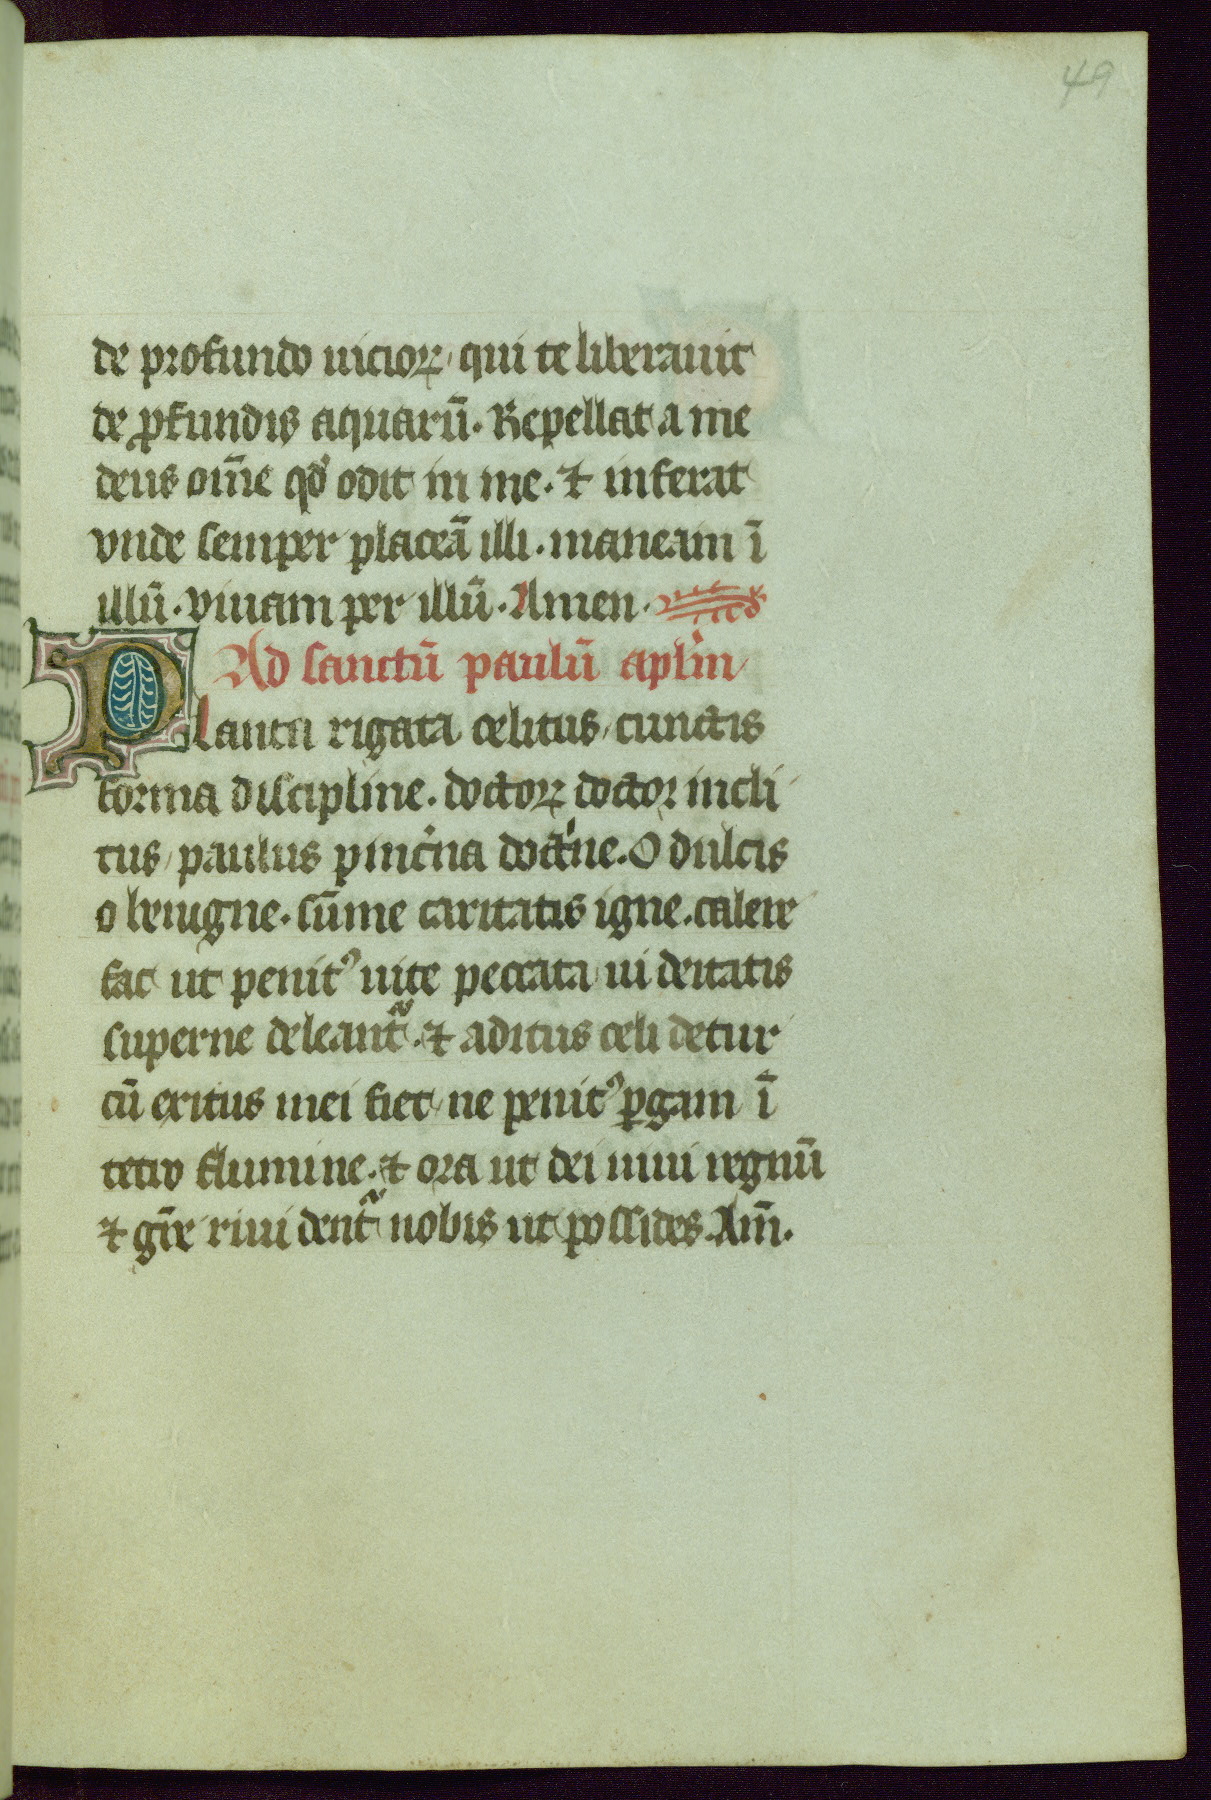 49
de profundo uicioꝝ qui te liberauit
de ꝓfundis aquarū. Repellat a me
deus om̄e qđ odit in me. ⁊ inferat
vnde semper placeā illi. maneam ī
illū. viuam per illū. Amen.
Ad sanctū paulū apl̄m
Planta rigata celitus, cunctis
forma discipline. doctoꝝ doctor incli
tus, paulus pincͥna doctͥne. O dulcis
o benigne. sūme caritatis igne. calere
fac ut penitꝰ uite peccata ui deitatis
superne deleant᷑. ⁊ aditus celi detur
cū exitus mei fiet, ne penitꝰ ꝑgam ī
tetro flumine. ⁊ ora ut dei uiui regnū
⁊ gr̄e riui dent᷑ nobis ut possides. Am̄.